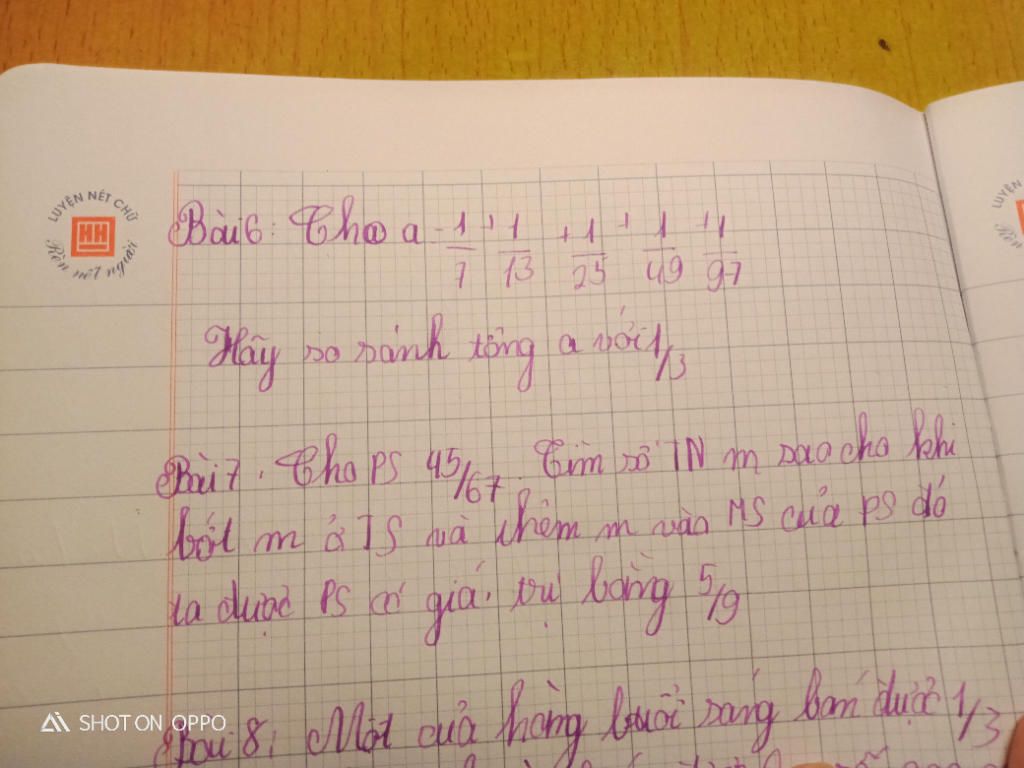 LUYỆN NÉT CHỮ
HH
Rèn nết người
Bài 6: Cho a = 1/7 + 1/13 + 1/25 + 1/49 + 1/97
Hãy so sánh tổng a với 1/3
Bài 7. Cho PS 45/67. Tìm số TN m sao cho khi
bớt m ở TS và thêm m vào MS của PS đó
ta được PS có giá trị bằng 5/9
Bài 8: Một cửa hàng buổi sáng bán được 1/3
SHOT ON OPPO